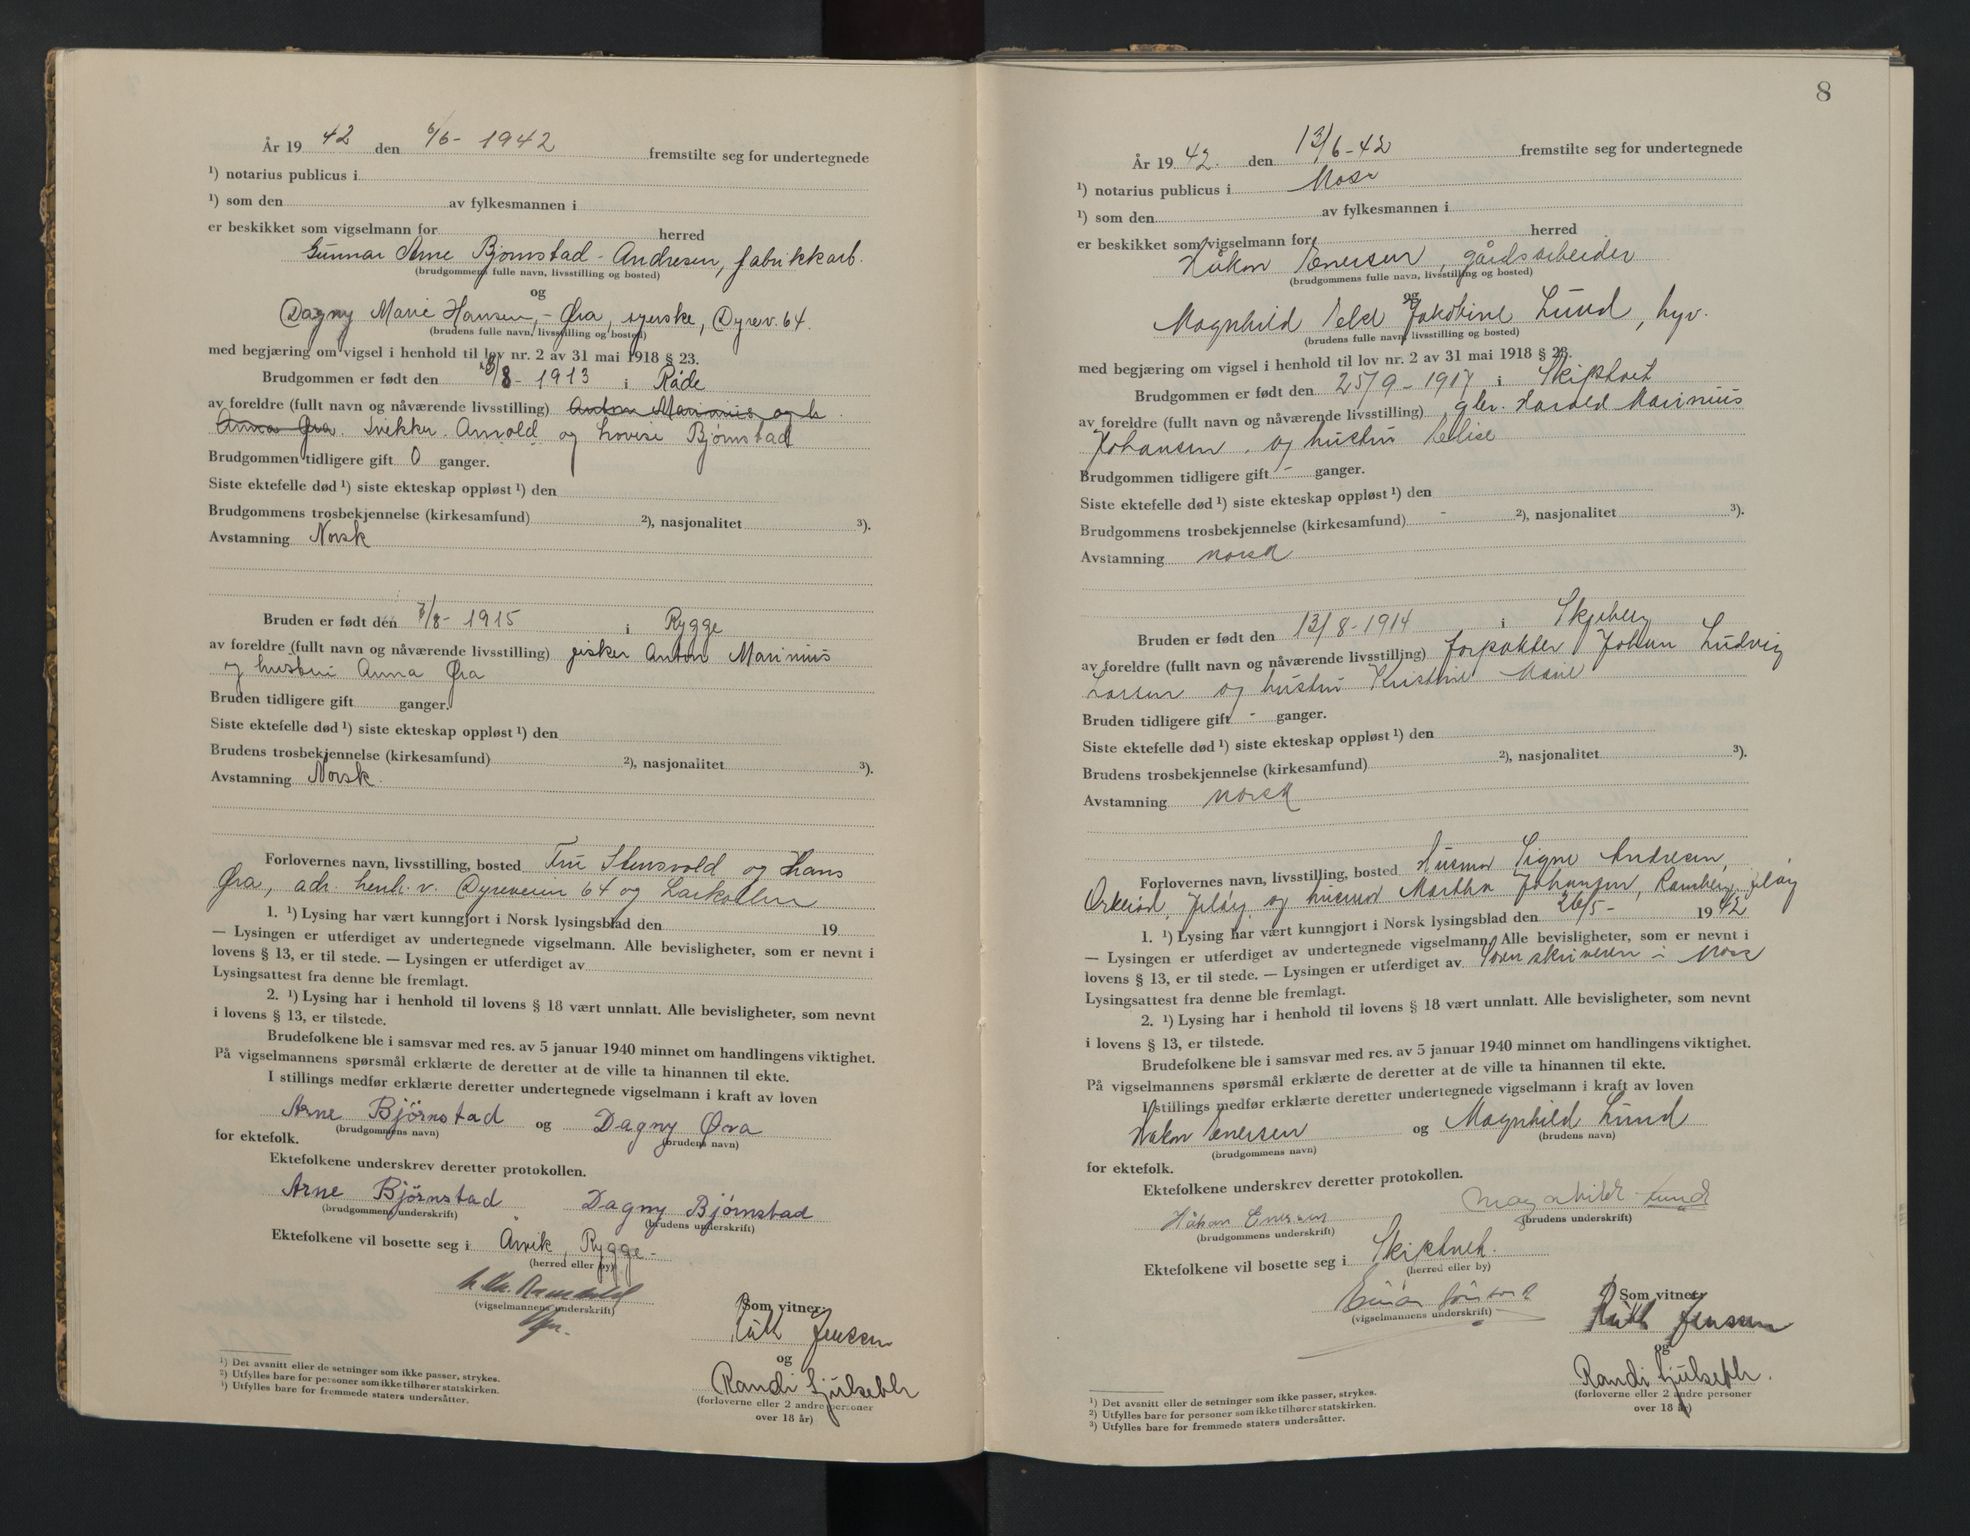 År 19 42 den 6/6 - 1942 fremstilte seg for undertegnede
¹) notarius publicus i
¹) som den av fylkesmannen i
er beskikket som vigselmann for herred
Gunnar Arne Bjørnstad - Andresen, fabrikkarb.
(brudgommens fulle navn, livsstilling og bosted)
og
Dagny Marie Hansen, - Øra, syerske, Dyrev. 64.
(brudens fulle navn, livsstilling og bosted)
med begjæring om vigsel i henhold til lov nr. 2 av 31 mai 1918 § 23.
Brudgommen er født den /8 - 1913 i Råde
av foreldre (fullt navn og nåværende livsstilling) Anton Marinius og h.
Anna Øra. Arnold og Lovise Bjørnstad
Brudgommen tidligere gift 0 ganger.
Siste ektefelle død ¹) siste ekteskap oppløst ¹) den
Brudgommens trosbekjennelse (kirkesamfund) ²), nasjonalitet ³).
Avstamning Norsk
Bruden er født den /8 - 1915 i Rygge
av foreldre (fullt navn og nåværende livsstilling) fisker Anton Marinius
og hustru Anna Øra
Bruden tidligere gift ganger.
Siste ektefelle død ¹) siste ekteskap oppløst ¹) den
Brudens trosbekjennelse (kirkesamfund) ²), nasjonalitet ³).
Avstamning Norsk.
Forlovernes navn, livsstilling, bosted Fru Stensvold og Hans
Øra, adr. henh. v. Dyreveien 64 og Larkollen
1. ¹) Lysing har vært kunngjort i Norsk lysingsblad den 19
— Lysingen er utferdiget av undertegnede vigselmann. Alle bevisligheter, som er nevnt i
lovens § 13, er til stede. — Lysingen er utferdiget av
Lysingsattest fra denne ble fremlagt.
2. ¹) Lysing har i henhold til lovens § 18 vært unnlatt. Alle bevisligheter, som nevnt
i lovens § 13, er tilstede.
Brudefolkene ble i samsvar med res. av 5 januar 1940 minnet om handlingens viktighet.
På vigselmannens spørsmål erklærte de deretter at de ville ta hinannen til ekte.
I stillings medfør erklærte deretter undertegnede vigselmann i kraft av loven
Arne Bjørnstad og Dagny Øra
(brudgommens navn) (brudens navn)
for ektefolk.
Ektefolkene underskrev deretter protokollen.
Arne Bjørnstad Dagny Bjørnstad
(brudgommens underskrift) (brudens underskrift)
Ektefolkene vil bosette seg i Årvik, Rygge -
(herred eller by)
(vigselmannens underskrift)
Som vitner:
Ruth Jensen
og
Randi
(forloverne eller 2 andre personer
over 18 år)
¹) Det avsnitt eller de setninger som ikke passer, strykes.
²) Utfylles bare for personer som ikke tilhører statskirken.
³) Utfylles bare for fremmede staters undersåtter.
8
År 19 42. den 13/6 - 42 fremstilte seg for undertegnede
¹) notarius publicus i Moss
¹) som den av fylkesmannen i
er beskikket som vigselmann for herred
Håkon Enersen, gårdsarbeider
(brudgommens fulle navn, livsstilling og bosted)
og
Magnhild Jakobine Lund, hyv.
(brudens fulle navn, livsstilling og bosted)
med begjæring om vigsel i henhold til lov nr. 2 av 31 mai 1918 § 23.
Brudgommen er født den 25/9 - 1917 i Skiptvet
av foreldre (fullt navn og nåværende livsstilling) gbr. Harald Marinius
Johansen. og hustru Elise
Brudgommen tidligere gift - ganger.
Siste ektefelle død ¹) siste ekteskap oppløst ¹) den
Brudgommens trosbekjennelse (kirkesamfund) - ²), nasjonalitet ³).
Avstamning norsk
Bruden er født den 13/8 - 1914 i Skjeberg
av foreldre (fullt navn og nåværende livsstilling) forpakter Johan Ludvig
Larsen og hustru Kristine Marie
Bruden tidligere gift - ganger.
Siste ektefelle død ¹) siste ekteskap oppløst ¹) den
Brudens trosbekjennelse (kirkesamfund) ²), nasjonalitet ³).
Avstamning norsk
Forlovernes navn, livsstilling, bosted Husmor Signe Andresen,
Orkerød, Jeløy, og husmor Martha Johansen, Ramberg, Jeløy
1. ¹) Lysing har vært kunngjort i Norsk lysingsblad den 26/5 - 1942
— Lysingen er utferdiget av undertegnede vigselmann. Alle bevisligheter, som er nevnt i
lovens § 13, er til stede. — Lysingen er utferdiget av Sorenskriveren i Moss
Lysingsattest fra denne ble fremlagt.
2. ¹) Lysing har i henhold til lovens § 18 vært unnlatt. Alle bevisligheter, som nevnt
i lovens § 13, er tilstede.
Brudefolkene ble i samsvar med res. av 5 januar 1940 minnet om handlingens viktighet.
På vigselmannens spørsmål erklærte de deretter at de ville ta hinannen til ekte.
I stillings medfør erklærte deretter undertegnede vigselmann i kraft av loven
Håkon Enersen og Magnhild Lund
(brudgommens navn) (brudens navn)
for ektefolk.
Ektefolkene underskrev deretter protokollen.
Håkon Enersen Magnhild Lund
(brudgommens underskrift) (brudens underskrift)
Ektefolkene vil bosette seg i Skiptvet.
(herred eller by)
(vigselmannens underskrift)
Som vitner:
Ruth Jensen
og
Randi
(forloverne eller 2 andre personer
over 18 år)
¹) Det avsnitt eller de setninger som ikke passer, strykes.
²) Utfylles bare for personer som ikke tilhører statskirken.
³) Utfylles bare for fremmede staters undersåtter.